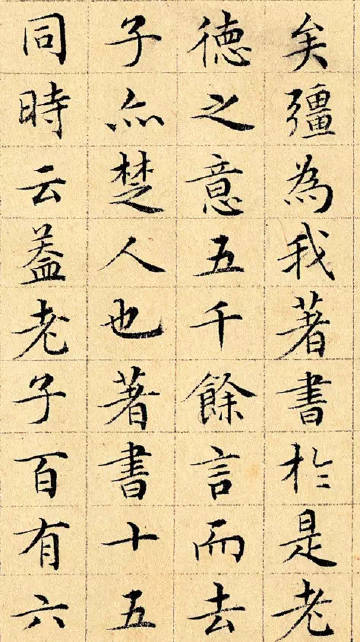 矣彊為我著書於是老
德之意五千餘言而去
子亦楚人也著書十五
同時云葢老子百有六